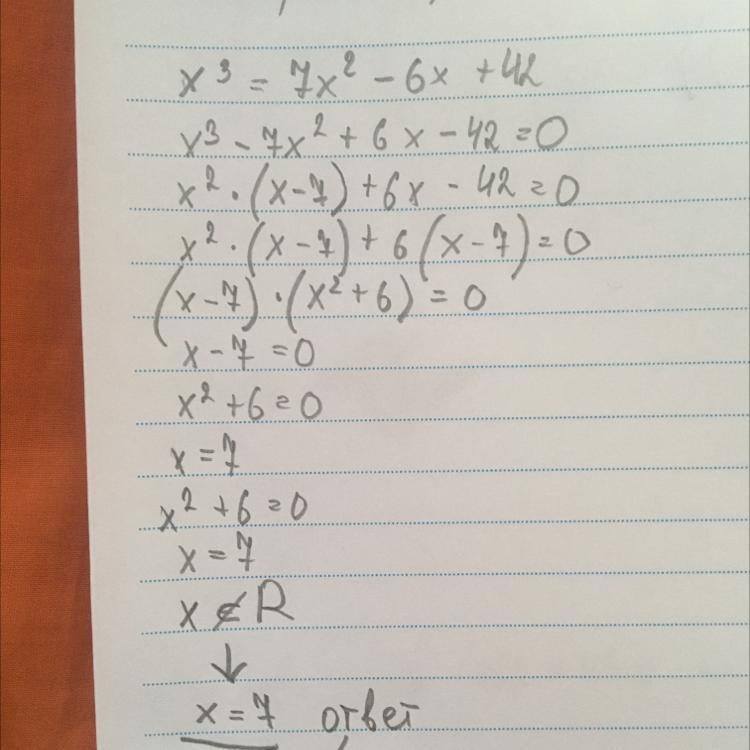 x³ = 7x² - 6x + 42
x³ - 7x² + 6x - 42 = 0
x² · (x-7) + 6x - 42 = 0
x² · (x-7) + 6(x-7) = 0
(x-7) · (x²+6) = 0
x-7 = 0
x²+6 = 0
x = 7
x²+6 = 0
x = 7
x ∉ R
↓
x = 7 ответ